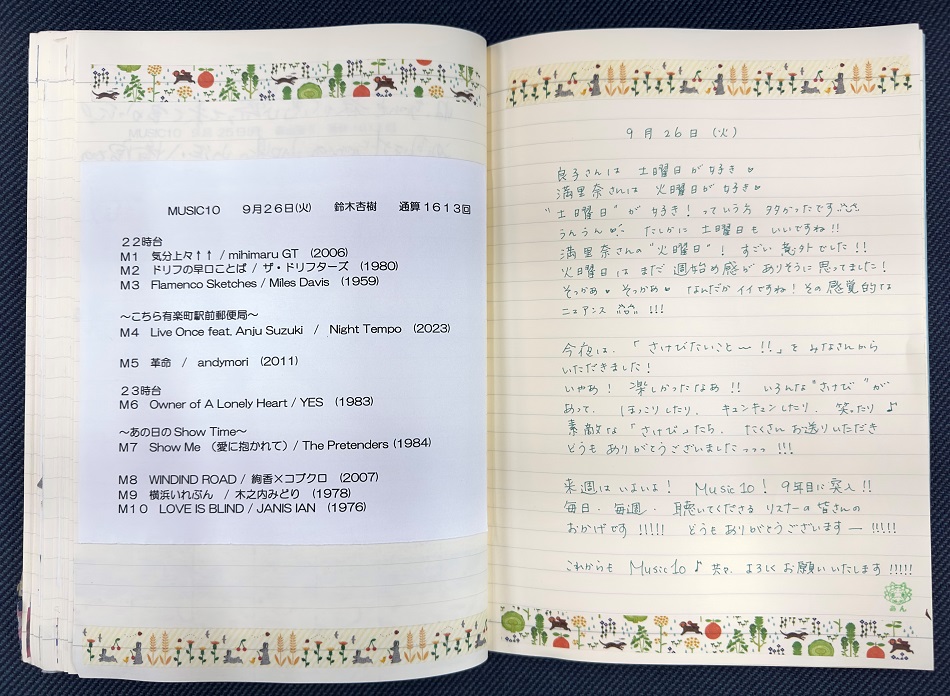 MUSIC10　9月26日(火)　鈴木杏樹　通算1613回
22時台
M1　気分上々↑↑ / mihimaru GT　(2006)
M2　ドリフの早口ことば / ザ・ドリフターズ　(1980)
M3　Flamenco Sketches / Miles Davis　(1959)
～こちら有楽町駅前郵便局～
M4　Live Once feat. Anju Suzuki　/　Night Tempo　(2023)
M5　革命　/　andymori　(2011)
23時台
M6　Owner of A Lonely Heart / YES　(1983)
～あの日のShow Time～
M7　Show Me　(愛に抱かれて) / The Pretenders (1984)
M8　WINDIND ROAD / 絢香×コブクロ　(2007)
M9　横浜いれぶん　/ 木之内みどり　(1978)
M10　LOVE IS BLIND / JANIS IAN　(1976)
9月26日(火)
良子さんは 土曜日が好き♡
満里奈さんは 火曜日が好き♡
"土曜日"が好き！っていう方 多かったです
うんうん♡ たしかに 土曜日も いいですね!!
満里奈さんの"火曜日"！ すごい 意外でした!!
火曜日は まだ 週始め感が ありそうに 思ってました！
そっかぁ♡ そっかぁ♡ なんだか イイですね！その感覚的な
ニュアンス !!!
今夜は、「さけびたいこと～!!」を みなさんから
いただきました！
いやぁ！ 楽しかったなぁ!! いろんな"さけび"が
あって、 ほっこりしたり、 キュンキュンしたり、 笑ったり♪
素敵な「さけび」たち、 たくさん お送りいただき
どうも ありがとうございましたっっっ !!!
来週は いよいよ！ Music10！ 9年目に突入!!
毎日、毎週、 聴いてくださる リスナーの皆さんの
おかげです!!!!! どうも ありがとうございます― !!!!!
これからも Music10♪ 共々、よろしく お願いいたします!!!!!